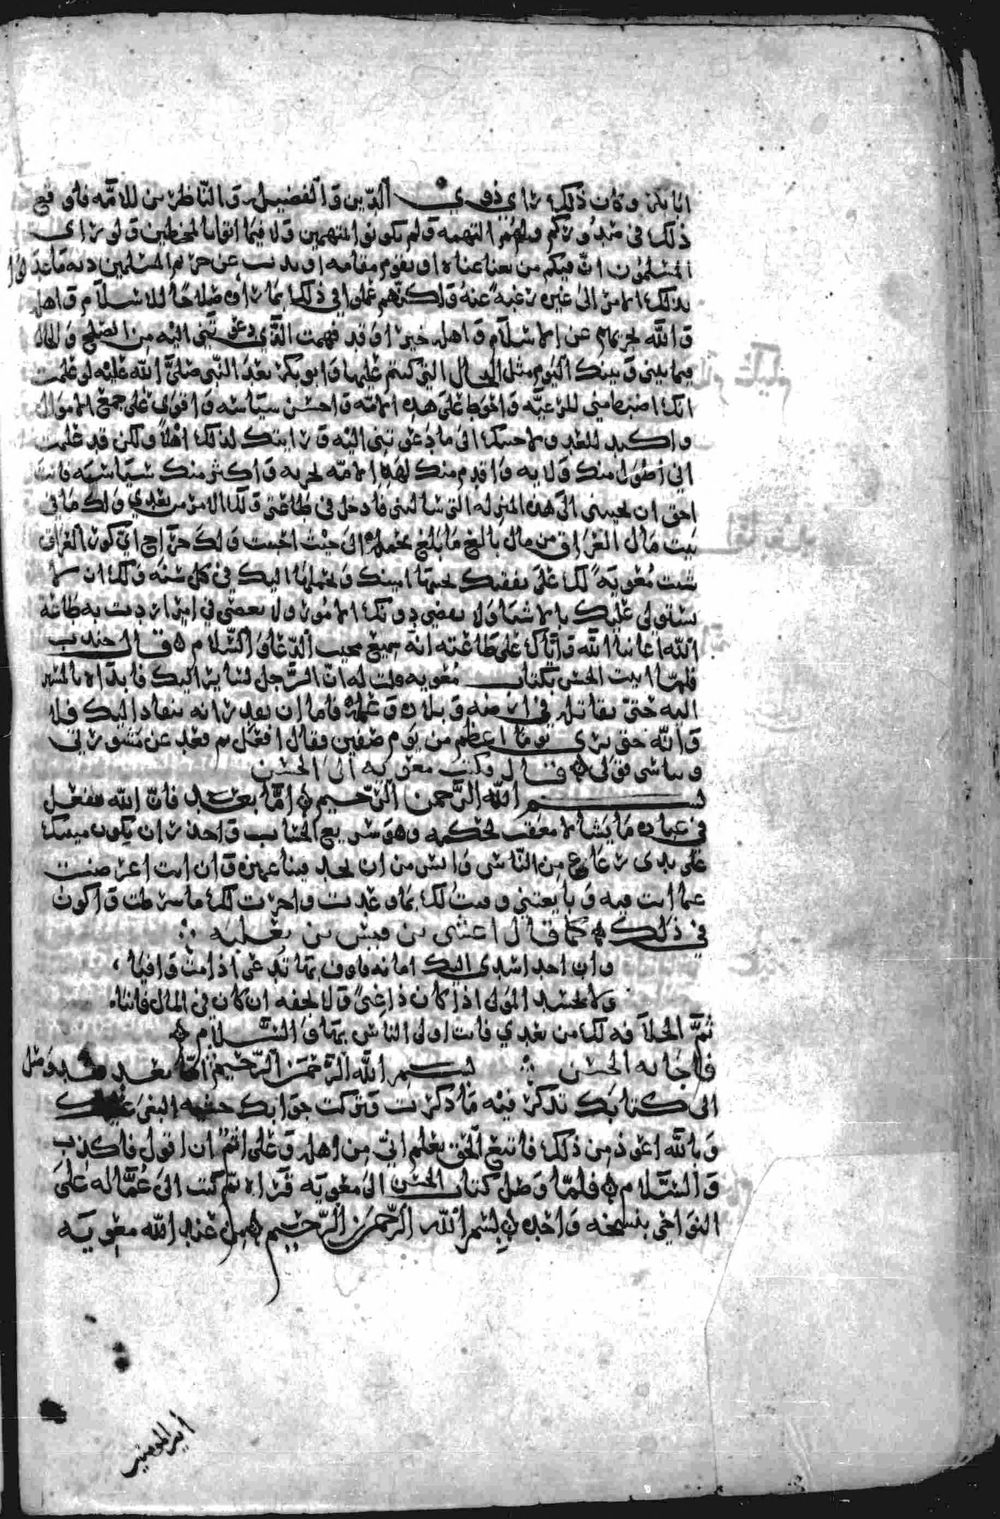 ابا بكر وكان ذلك راي ذوي الدين والفضيل والناظرين للامه فاوقع
ذلك في صدوركم لهم التهمه ولم يكونوا متهمين ولا فيما اتوا بالمخطين ولو راي
المسلمون ان فيكم من يغنا غناه او يقوم مقامه او يذب عن حريم المسلمين ذبه ما عدلوا
بذلك الامر الى غيره رغبة عنه ولكنهم عملوا في ذلك بما راوه صلاحا للاسلام واهله
والله يجزيهم عن الاسلام واهله خيرا وقد فهمت الذي دعوتني اليه من الصلح والحال
فيما بيني وبينك اليوم مثل الحال التي كنتم عليها وابو بكر بعد النبي صلى الله عليه لو علمت
انك اضبط مني للرعيه واحوط على هذه الامه واحسن سياسه واقوى على جمع الاموال
واكيد للعدو لاجبتك الى ما دعوتني اليه ورايتك لذلك اهلا ولكن قد علمت
اني اطول منك ولايه واقدم منك لهذه الامه تجربه واكثر منك سياسيه فانت
احق ان تجيبني الى هذه المنزله التي سالتني فادخل في طاعتي ولك الامر من بعدي ولك ما في
بيت مال العراق من مال بالغ ما بلغ تحمله الى حيث احببت ولك خراج اي كور العراق
شئت معويه لك على نفقتك يجبيها امينك ويحملها اليك في كل سنه ولك ان لا
يستولى عليك بالاشيا ولا يقضى دونك الامور ولا تعصى في امر اردت به طاعه
الله اعاننا الله واياك على طاعته انه سميع مجيب الدعا والسلام قال جندب
فلما اتيت الحسن بكتاب معويه قلت له ان الرجل سائر اليك فابداه بالمسير
اليه حتى تقاتله في ارضه وبلاده وعمله فاما ان تقدر انه ينقاد اليك فلا
والله حتى يرى يوما اعظم من يوم صفين فقال افعل ثم قعد عن مشورتي
وتناسى قولي قال وكتب معويه الى الحسن
بسم الله الرحمن الرحيم اما بعد فان الله يفعل
في عباده ما يشا لا معقب لحكمه وهو سريع الحساب واحذر ان يكون منيتك
على يدي رعاع من الناس وايس من ان تجد فينا غميزه وان انت اعرضت
عما انت فيه وبايعتني وفيت لك بما وعدت واجزت لك ما شرطت واكون
في ذلك كما قال اعشى بن قيس بن ثعلبه
وان احد اسدى اليك امانه فاوف بها تدعى اذا مت وافيا
ولا تحسد المولى اذا كان ذا غنى ولا تجفه ان كان في المال فانيا
ثم الخلافه لك من بعدي فانت اولى الناس بها والسلام
فاجابه الحسن بسم الله الرحمن الرحيم اما بعد فقد وصل
الي كتابك تذكر فيه ما ذكرت وتركت جوابك خشيه البغي عليك
وبالله اعوذ من ذلك فاتبع الحق تعلم اني من اهله وعلي اثم ان اقول فاكذب
والسلام فلما وصل كتاب الحسن الى معويه قراه ثم كتب الى عماله على
النواحي بنسخه واحده بسم الله الرحمن الرحيم من عبد الله معويه
أمير المومنين